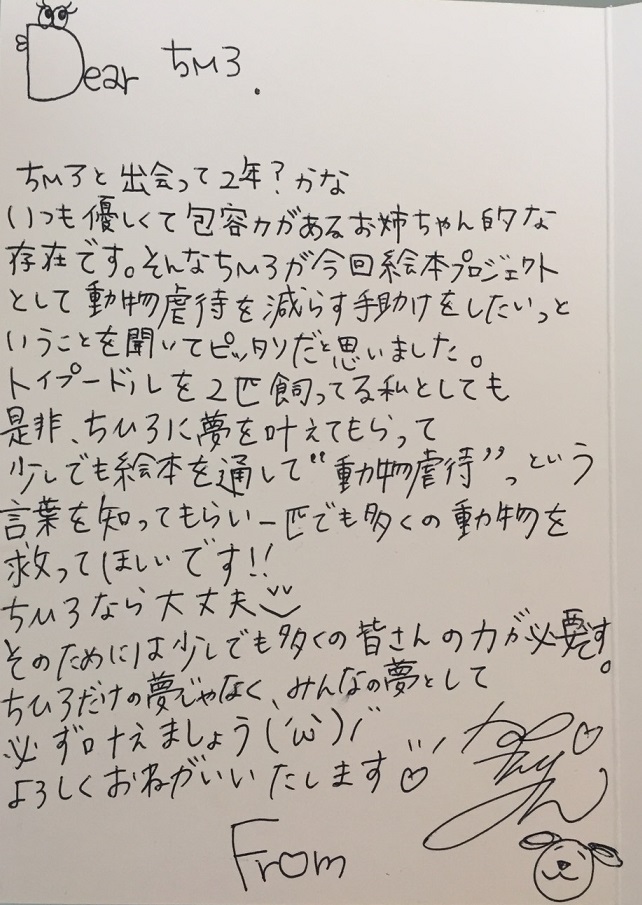 Dear ちひろ.
ちひろと出会って2年?かな
いつも優しくて包容力があるお姉ちゃん的な
存在です。そんなちひろが今回絵本プロジェクト
として動物虐待を減らす手助けをしたいっと
いうことを聞いてピッタリだと思いました。
トイプードルを2匹飼ってる私としても
是非、ちひろに夢を叶えてもらって
少しでも絵本を通して“動物虐待”っという
言葉を知ってもらい一匹でも多くの動物を
救ってほしいです!!
ちひろなら大丈夫
そのためには少しでも多くの皆さんの力が必要です。
ちひろだけの夢じゃなく、みんなの夢として
必ず叶えましょう(´ω`)/
よろしくおねがいいたします♡
From